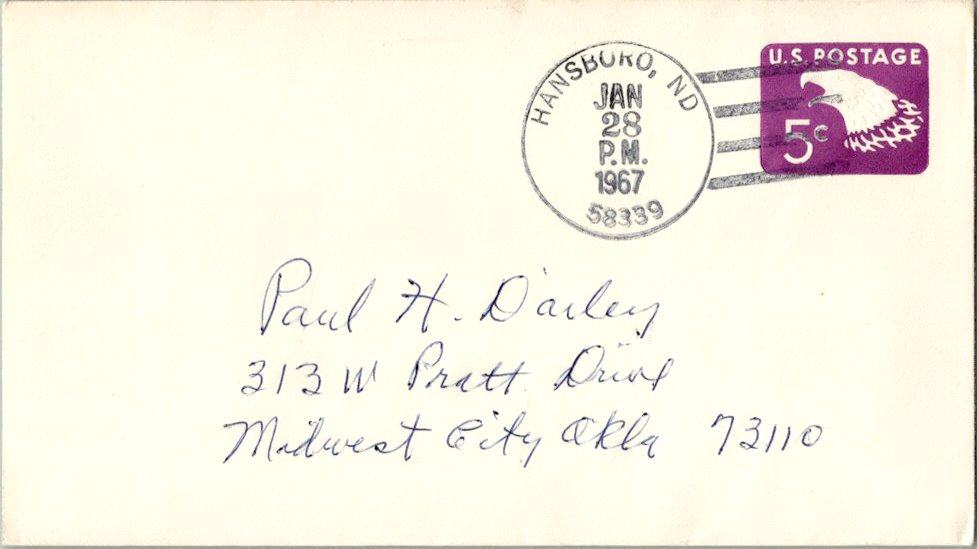 HANSBORO, ND
JAN
28
P.M.
1967
58339
U.S. POSTAGE
5c
Paul H. Darley
313 W Pratt Drive
Midwest City Okla 73110